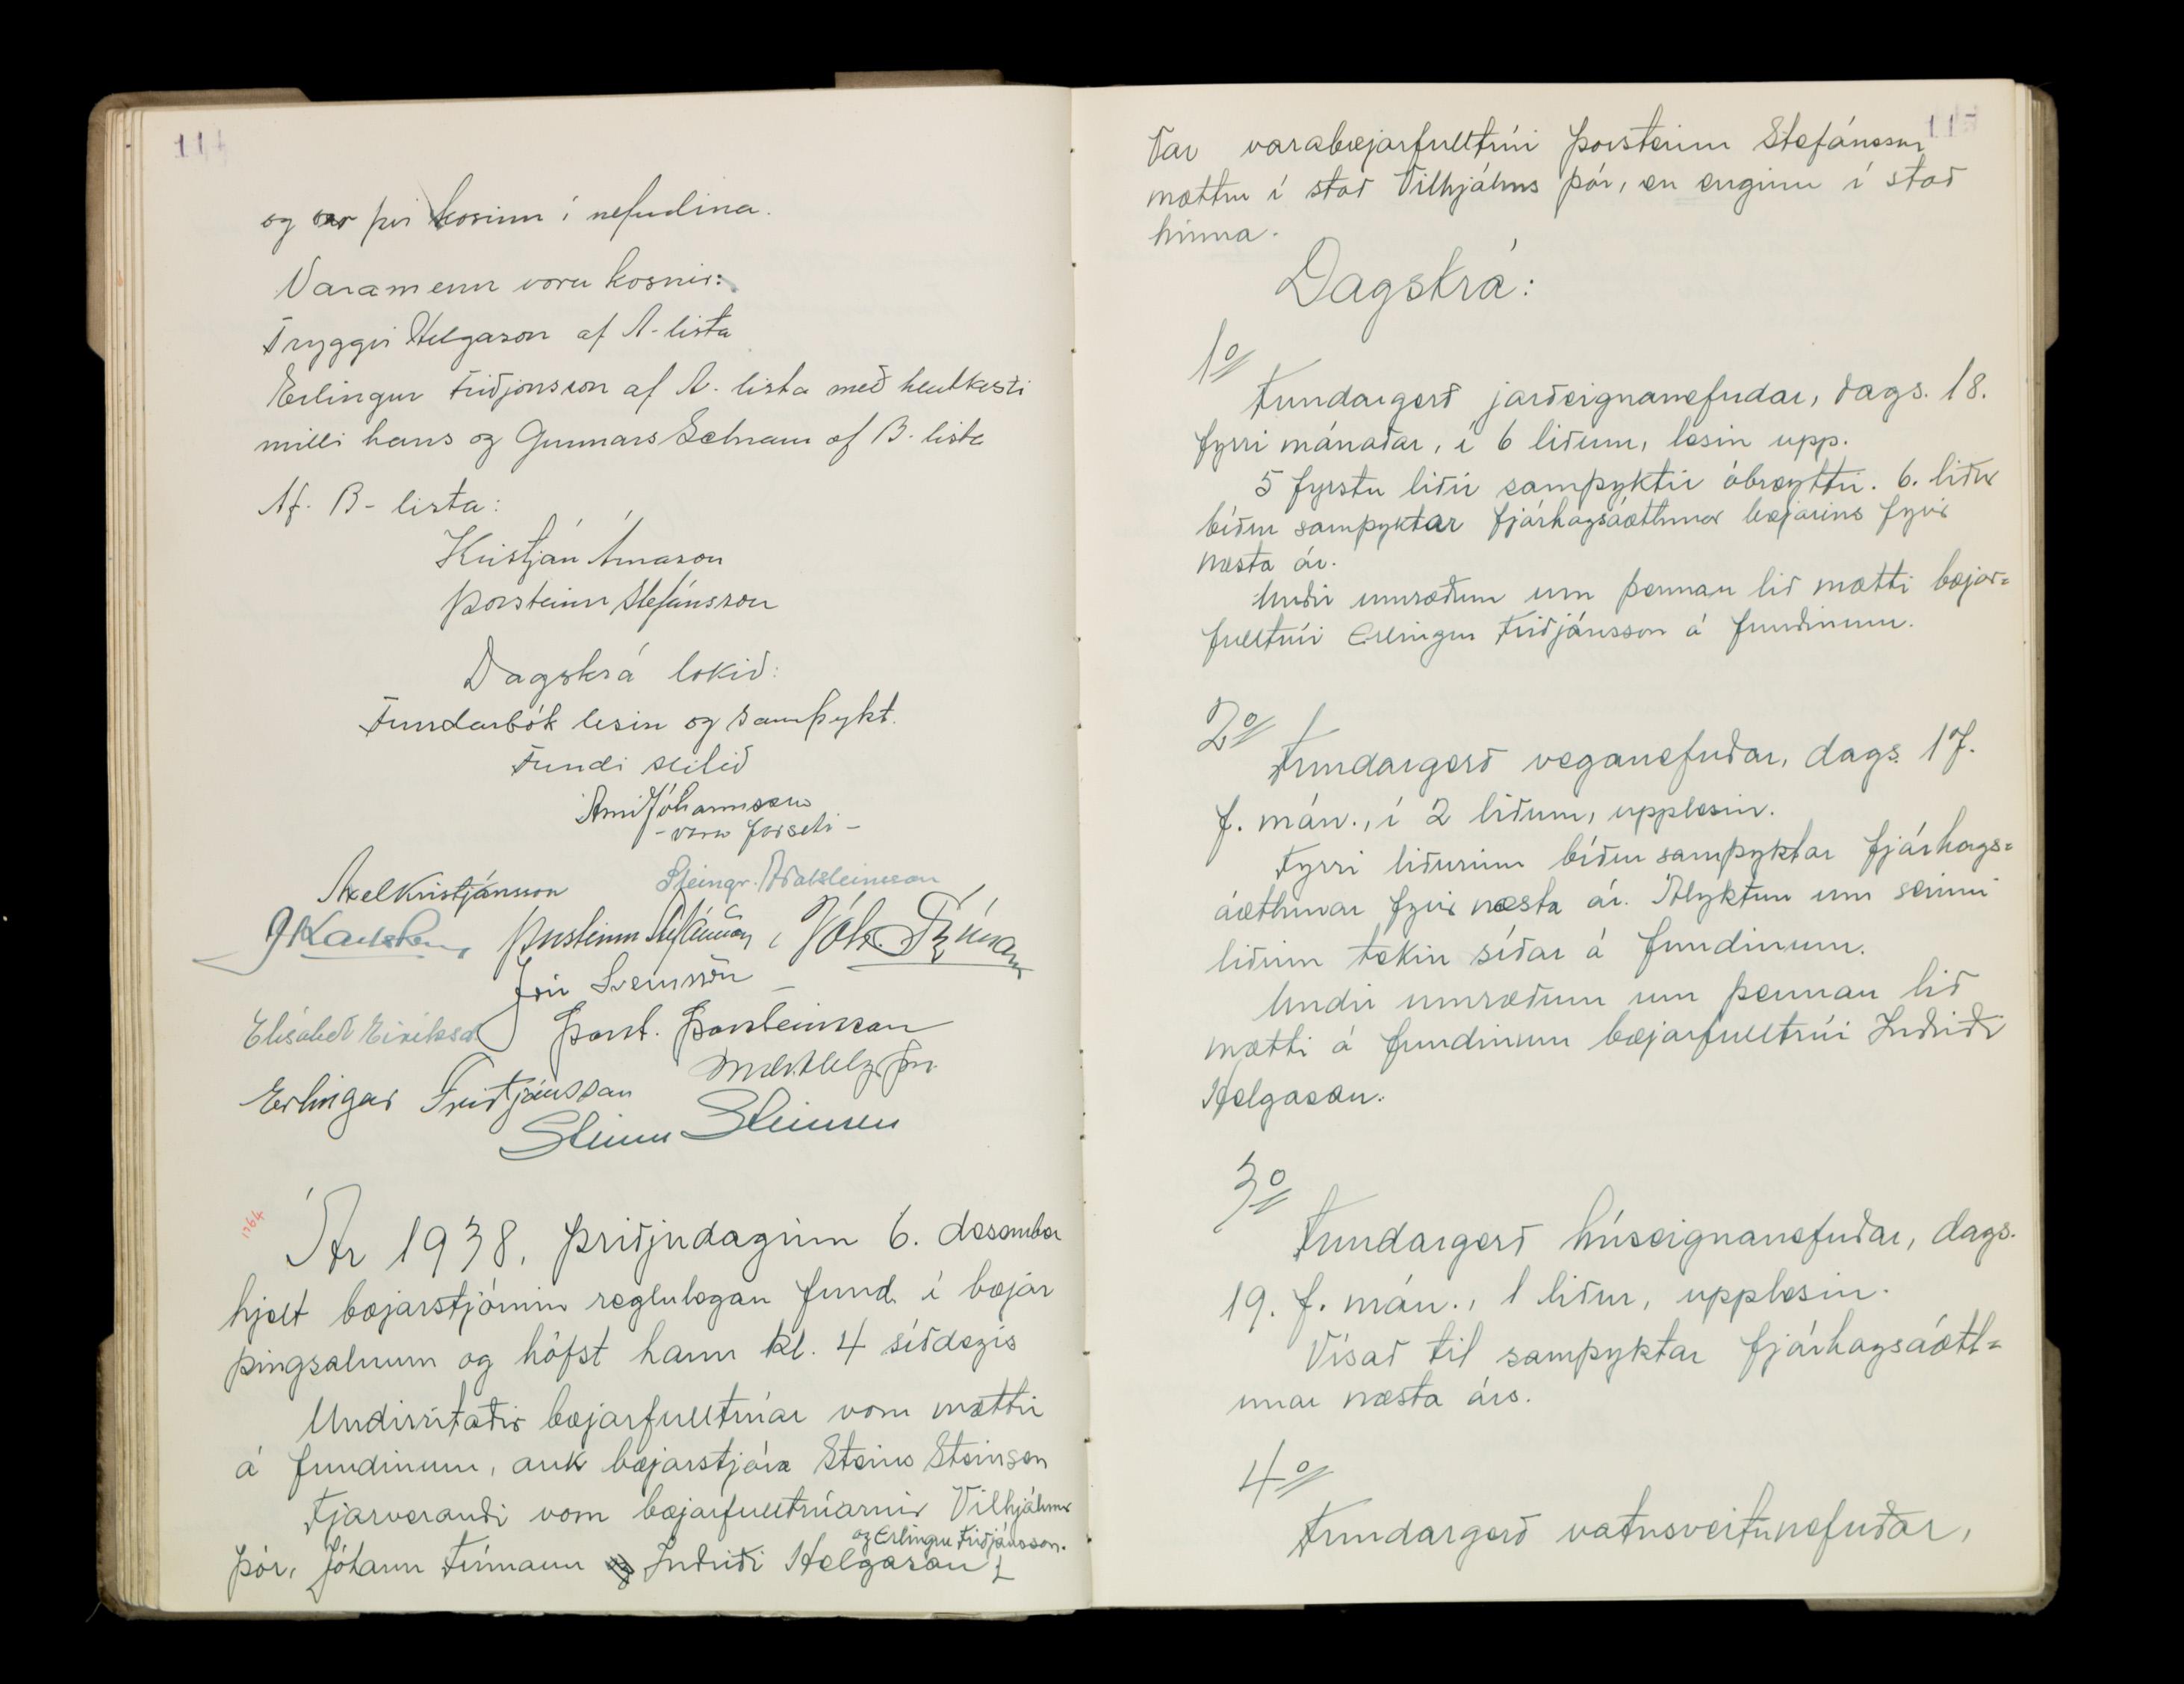 114
og var því kosinn í nefndina.
Varamenn voru kosnir:
Tryggvi Helgason af A-lista
Erlingur Friðjónsson af A-lista með hlutkesti
milli hans og Gunnars Schram af B-lista
Af B-lista:
Kristján Árnason
Þorsteinn Stefánsson
Dagskrá lokið:
Fundarbók lesin og samþykt.
Fundi slitið
Árni Jóhannsson
- vara forseti -
Axel Kristjánsson Steingr. Aðalsteinsson
J Karlsson Þorsteinn Stefánsson, Jóh. Frímann
Jón Sveinsson
Elísabet Eiríksd Þorst. Þorsteinsson
Erlingur Friðjónsson
Steinn Steinsen
1764
Ár 1938, þriðjudaginn 6. desember
hjelt bæjarstjórnin reglulegan fund í bæjar
þingsalnum og hófst hann kl. 4 síðdegis
Undirritaðir bæjarfulltrúar voru mættir
á fundinum, auk bæjarstjóra Steins Steinsen
Fjarverandi voru bæjarfulltrúarnir Vilhjálmur
og Erlingur Friðjónsson.
Þór, Jóhann Frímann og Indriði Helgason
Var varabæjarfulltrúi Þorsteinn Stefánsson
mættur í stað Vilhjálms Þór, en enginn í stað
hinna.
Dagskrá:
1o
Fundargerð jarðeignanefndar, dags. 18.
fyrri mánaðar, í 6 liðum, lesin upp.
5 fyrstu liðir samþyktir óbreyttir. 6. liður
bíður samþyktar fjárhagsáætlunar bæjarins fyrir
næsta ár.
Undir umræðum um þennan lið mætti bæjar=
fulltrúi Erlingur Friðjónsson á fundinum.
2o
Fundargerð veganefndar, dags. 17.
f. mán., í 2 liðum, upplesin.
Fyrri liðurinn bíður samþyktar fjárhags=
áætlunar fyrir næsta ár. Ályktun um seinni
liðinn tekin síðar á fundinum.
Undir umræðum um þennan lið
mætti á fundinum bæjarfulltrúi Indriði
Helgason.
3o
Fundargerð húseignanefndar, dags.
19. f. mán., 1 liður, upplesin.
Vísað til samþyktar fjárhagsáætl=
unar næsta árs.
4o
Fundargerð vatnsveitunefndar,